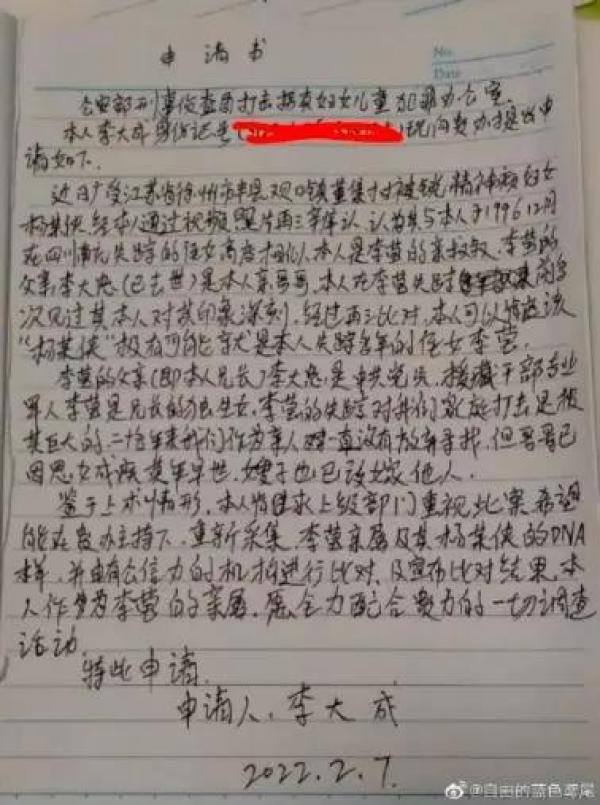 申请书
No.
Date
公安部刑事侦查局打击拐卖妇女儿童犯罪办公室.
本人李大成身份证号 现向贵办提出申
请如下.
近日广受江苏省徐州市丰县欢口镇董集村被锁精神病妇女
杨某侠经本人通过视频照片再三辨认,认为其与本人于1996 12月
在四川南充失踪的侄女高度相似,本人是李莹的亲叔叔,李莹的
父亲,李大忠(已去世)是本人亲哥哥,本人在李莹失踪前多
次见过其本人对其印象深刻,经过再三比对,本人可以确定该
“杨某侠”极有可能就是本人失踪多年的侄女李莹.
李莹的父亲(即本人兄长)李大忠,是中共党员,援藏干部专业
军人李莹是兄长的独生女,李莹的失踪对我们家庭打击是极
其巨大的,二十多年来我们作为亲人一直没有放弃寻找,但哥哥已
因思女成疾英年早世,嫂子也已改嫁他人.
鉴于上述情形,本人特请求上级部门重视此案希望
能在贵办主持下,重新采集,李莹亲属及其杨某侠的DNA
样,并由有公信力的机构进行比对,及宣布比对结果,本
人作为李莹的亲属,愿全力配合贵办的一切调查
活动.
特此申请.
申请人,李大成
2022.2.7.
@自由的蓝色鸢尾